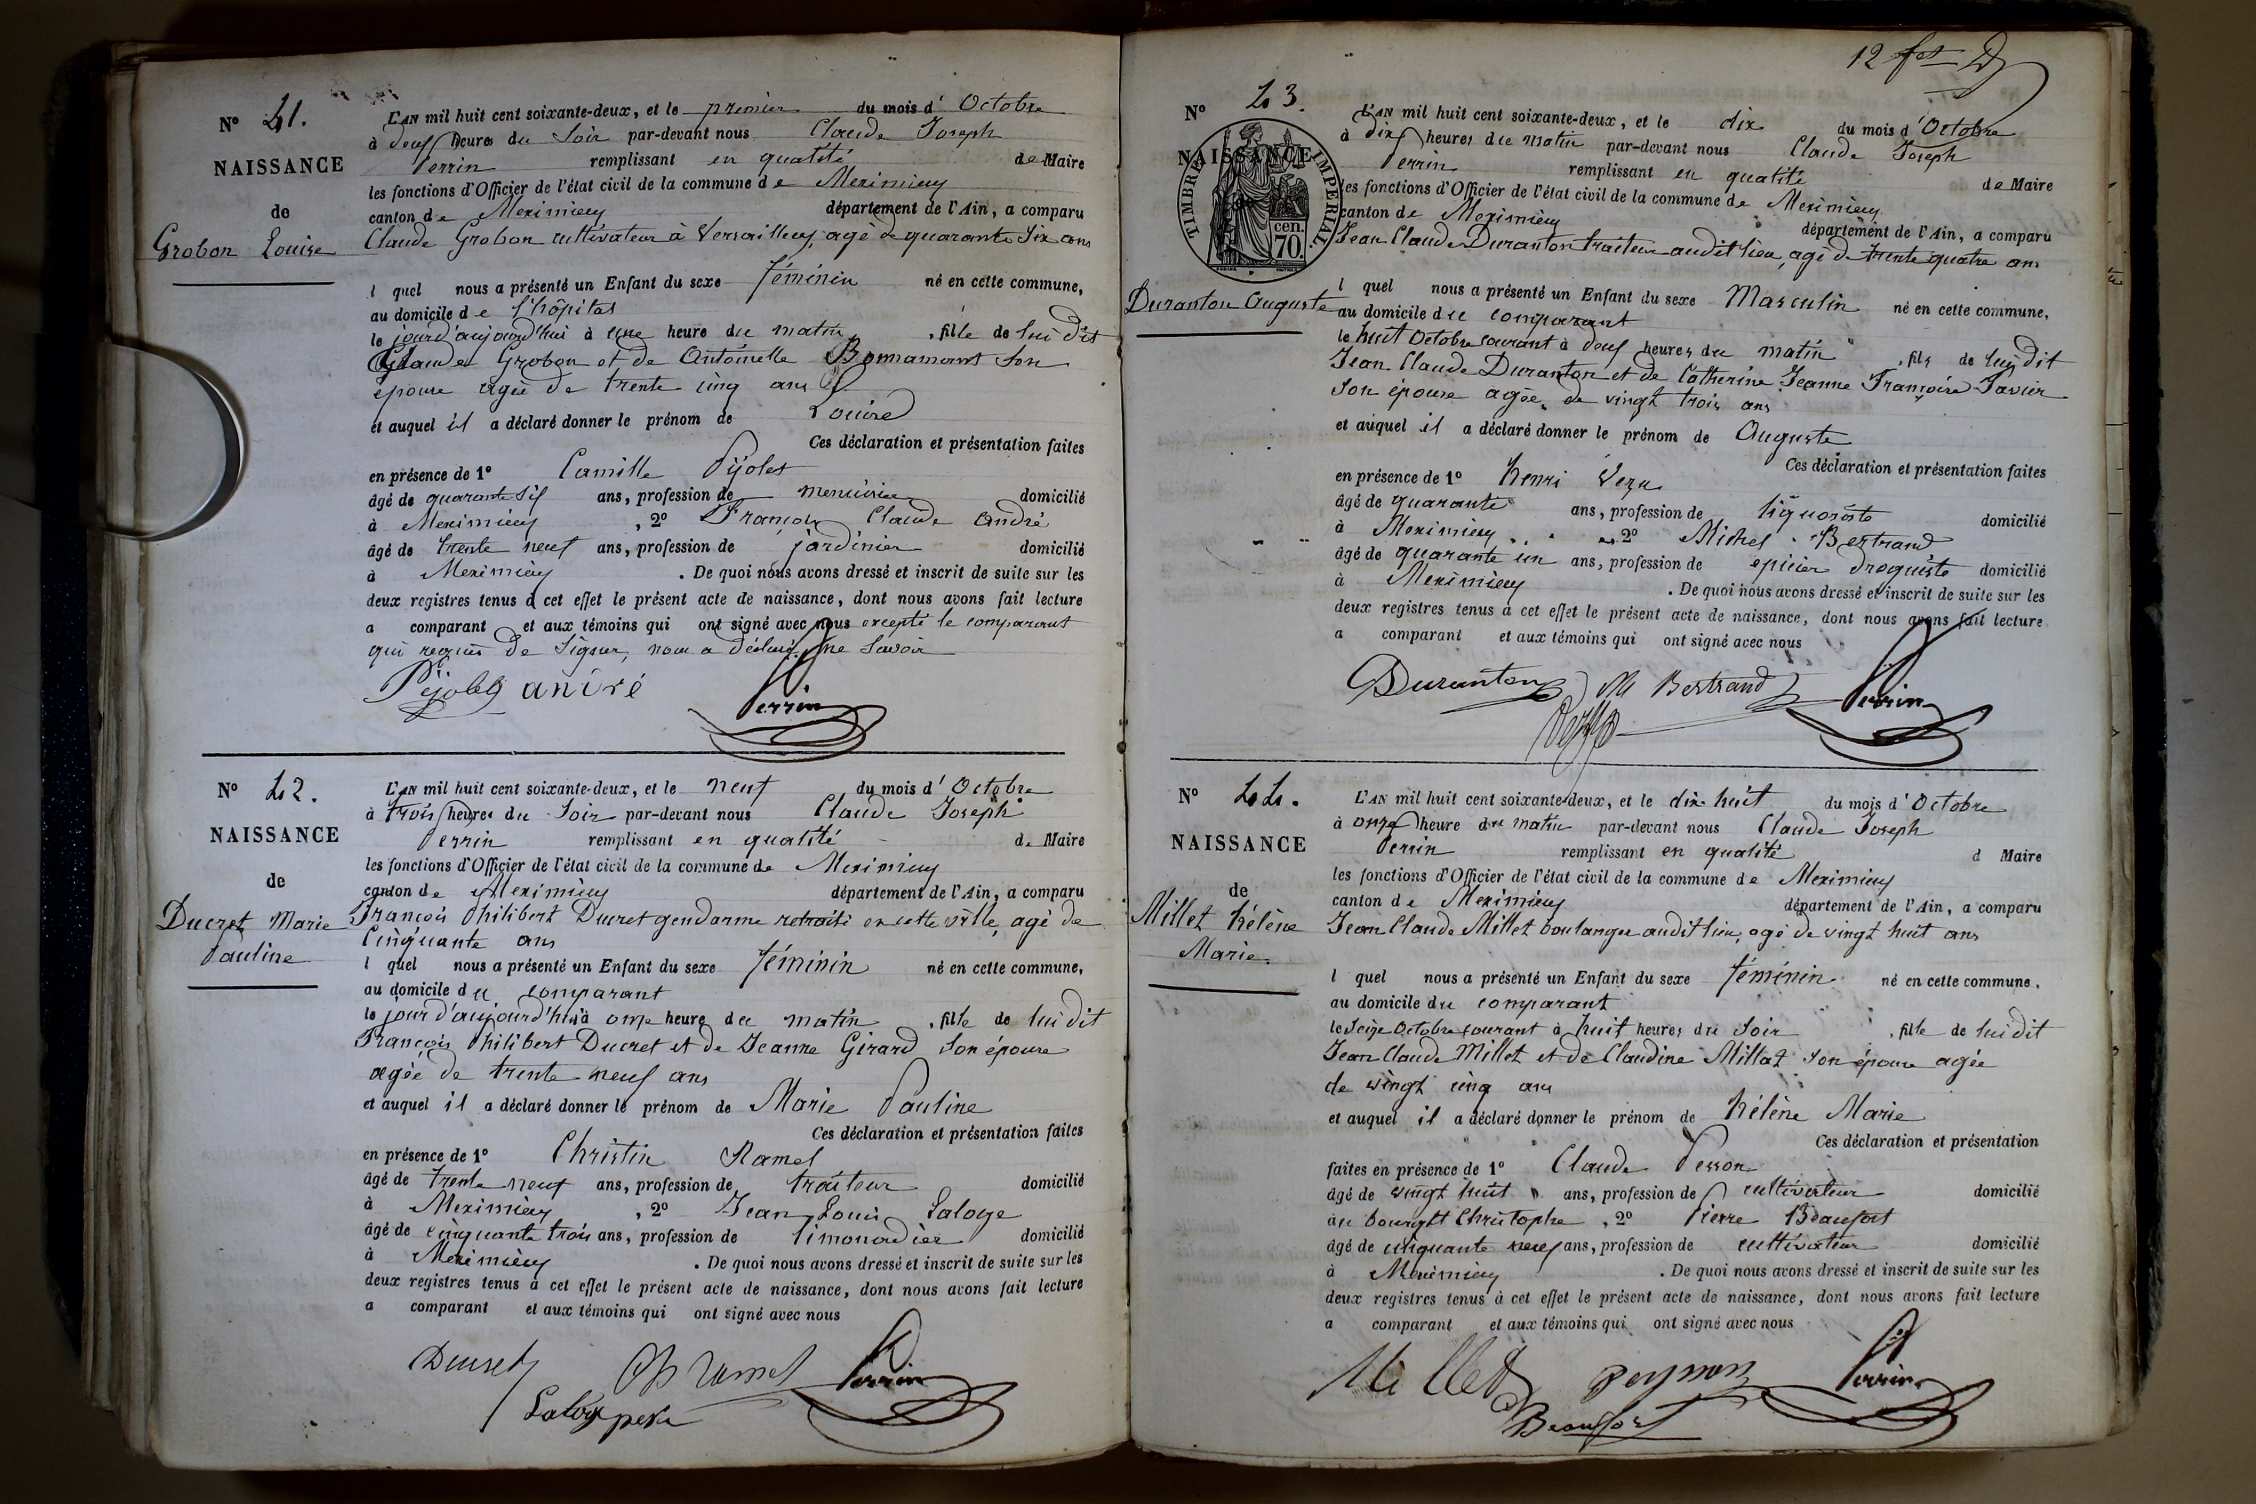 N° 41.
NAISSANCE
de
Grobon Louise
L'AN mil huit cent soixante-deux, et le premier du mois d'Octobre
à deux heures du Soir par-devant nous Claude Joseph
Perrin remplissant en qualité de Maire
les fonctions d'Officier de l'état civil de la commune de Meximieux
canton de Meximieux département de l'Ain, a comparu
Claude Grobon cultivateur à Versailleux, agé de quarante six ans
l quel nous a présenté un Enfant du sexe féminin né en cette commune,
au domicile de l'hôpital
le jourd'aujourd'hui à une heure du matin, fille de lui dit
Claude Grobon et de Antoinette Bonnamant Son
épouse agée de trente cinq ans
et auquel il a déclaré donner le prénom de Louise
Ces déclaration et présentation faites
en présence de 1° Camille Pijolet
âgé de quarante six ans, profession de menuisier domicilié
à Meximieux, 2° François Claude André
âgé de trente neuf ans, profession de jardinier domicilié
à Meximieux. De quoi nous avons dressé et inscrit de suite sur les
deux registres tenus à cet effet le présent acte de naissance, dont nous avons fait lecture
a comparant et aux témoins qui ont signé avec nous excepté le comparant
qui requis de Signer, nous a déclaré ne Savoir
Pijolet andré Perrin
N° 42.
NAISSANCE
de
Ducret Marie
Pauline
L'AN mil huit cent soixante-deux, et le neuf du mois d'Octobre
à trois heures du Soir par-devant nous Claude Joseph
Perrin remplissant en qualité de Maire
les fonctions d'Officier de l'état civil de la commune de Meximieux
canton de Meximieux département de l'Ain, a comparu
François Philibert Ducret gendarme retraité en cette ville, agé de
Cinquante ans
l quel nous a présenté un Enfant du sexe féminin né en cette commune,
au domicile du comparant
le jour d'aujourd'hui à onze heure du matin, fille de lui dit
François Philibert Ducret et de Jeanne Girard Son épouse
agée de trente neuf ans
et auquel il a déclaré donner le prénom de Marie Pauline
Ces déclaration et présentation faites
en présence de 1° Christin Ramel
âgé de trente neuf ans, profession de traiteur domicilié
à Meximieux, 2° Jean Louis Laloge
âgé de cinquante trois ans, profession de limonadier domicilié
à Meximieux. De quoi nous avons dressé et inscrit de suite sur les
deux registres tenus à cet effet le présent acte de naissance, dont nous avons fait lecture
a comparant et aux témoins qui ont signé avec nous
Ducret Ch Ramel Perrin
Laloge
12
N° 43.
NAISSANCE
TIMBRE IMPÉRIAL
70. cen.
Duranton Auguste
L'AN mil huit cent soixante-deux, et le dix du mois d'Octobre
à dix heures du matin par-devant nous Claude Joseph
Perrin remplissant en qualité de Maire
les fonctions d'Officier de l'état civil de la commune de Meximieux
canton de Meximieux département de l'Ain, a comparu
Jean Claude Duranton traiteur audit lieu, agé de trente quatre ans
l quel nous a présenté un Enfant du sexe Masculin né en cette commune,
au domicile du comparant
le huit Octobre courant à deux heures du matin, fils de lui dit
Jean Claude Duranton et de Catherine Jeanne Françoise Savier
Son épouse agée de vingt trois ans
et auquel il a déclaré donner le prénom de Auguste
Ces déclaration et présentation faites
en présence de 1° Henri
âgé de quarante ans, profession de liquoriste domicilié
à Meximieux 2° Michel Bertrand
âgé de quarante un ans, profession de épicier droguiste domicilié
à Meximieux. De quoi nous avons dressé et inscrit de suite sur les
deux registres tenus à cet effet le présent acte de naissance, dont nous avons fait lecture
a comparant et aux témoins qui ont signé avec nous
Duranton M Bertrand Perrin
N° 44.
NAISSANCE
de
Millet hélène
Marie.
L'AN mil huit cent soixante-deux, et le dix huit du mois d'Octobre
à onze heure du matin par-devant nous Claude Joseph
Perrin remplissant en qualité d Maire
les fonctions d'Officier de l'état civil de la commune de Meximieux
canton de Meximieux département de l'Ain, a comparu
Jean Claude Millet boulanger audit lieu, agé de vingt huit ans
l quel nous a présenté un Enfant du sexe féminin né en cette commune,
au domicile du comparant
le Seize Octobre courant à huit heures du Soir, fille de lui dit
Jean Claude Millet et de Claudine Millat Son épouse agée
de vingt cinq ans
et auquel il a déclaré donner le prénom de hélène Marie
Ces déclaration et présentation
faites en présence de 1° Claude
âgé de vingt huit ans, profession de cultivateur domicilié
au bourg St Christophe, 2° Pierre Beaufort
âgé de cinquante neuf ans, profession de cultivateur domicilié
à Meximieux. De quoi nous avons dressé et inscrit de suite sur les
deux registres tenus à cet effet le présent acte de naissance, dont nous avons fait lecture
a comparant et aux témoins qui ont signé avec nous
Millet Perrin
Beaufort